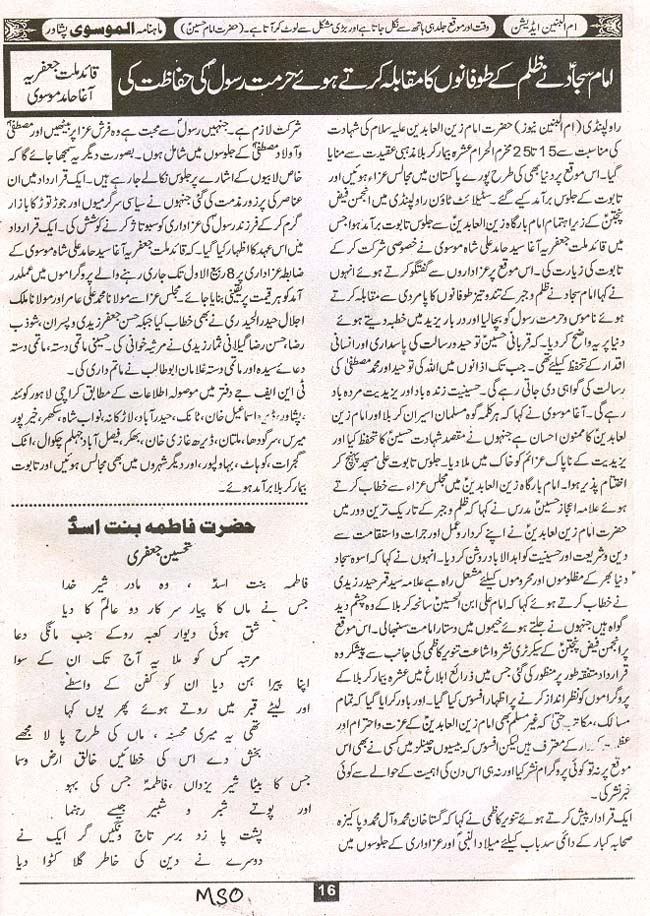 ام البنین ایڈیشن
وقت اور موقع جلد ہی ہاتھ سے نکل جاتا ہے اور بڑی مشکل سے لوٹ کر آتا ہے۔ (حضرت امام حسینؑ)
ماہنامہ الموسوی پشاور
امام سجادؑ نے ظلم کے طوفانوں کا مقابلہ کرتے ہوئے حرمت رسولؐ کی حفاظت کی
قائد ملت جعفریہ
آغا حامد موسوی
راولپنڈی (ام البنین نیوز) حضرت امام زین العابدین علیہ سلام کی شہادت
کی مناسبت سے 15 تا 25 محرم الحرام عشرہ بیمار کربلا مذہبی عقیدت سے منایا
گیا۔ اس موقع پر دنیا بھی کی طرح پورے پاکستان میں مجالس عزاء ہوئیں اور
تابوت کے جلوس برآمد کیے گئے۔ سٹیلائٹ ٹاؤن راولپنڈی میں انجمن فیض
پنجتنؑ کے زیر اہتمام امام بارگاہ زین العابدینؑ سے جلوس تابوت برآمد ہوا جس
میں قائد ملت جعفریہ آغا سید حامد علی شاہ موسوی نے خصوصی شرکت کر کے
تابوت کی زیارت کی۔ اس موقع پر عزاداروں سے گفتگو کرتے ہوئے انہوں
نے کہا امام سجادؑ نے ظلم و جبر کے تند و تیز طوفانوں کا پامردی سے مقابلہ کرتے
ہوئے ناموس و حرمت رسولؐ کو بچا لیا اور دربار یزید میں خطبہ دیتے ہوئے
دنیا پر یہ واضح کر دیا۔ کہ قربانی حسینؑ توحید و رسالت کی پاسداری اور انسانی
اقدار کے تحفظ کیلئے تھی۔ جب تک اذانوں میں اللہ کی توحید اور محمد مصطفیؐ کی
رسالت کی گواہی دی جاتی رہے گی۔ حسینیت زندہ باد اور یزیدیت مردہ باد
رہے گی۔ آغا موسوی نے کہا کہ ہر کلمہ گو مسلمان اسیران کربلا اور امام زین
العابدینؑ کا ممنون احسان ہے جنہوں نے مقصد شہادت حسینؑ کا تحفظ کیا اور
یزیدیت کے ناپاک عزائم کو خاک میں ملا دیا۔ جلوس تابوت علی مسجد پہنچ کر
اختتام پذیر ہوا۔ امام بارگاہ زین العابدینؑ میں مجلس عزاء سے خطاب کرتے
ہوئے علامہ اعجاز حسین مدرس نے کہا کہ ظلم و جبر کے تاریک ترین دور میں
حضرت امام زین العابدینؑ نے اپنے کردار و عمل اور جرات و استقامت سے
دین و شریعت اور حسینیت کو ابدالاباد روشن کر دیا۔ انہوں نے کہا کہ اسوہ سجاد
دنیا بھر کے مظلوموں اور محروموں کیلئے مشعل راہ ہے علامہ سید قمر حیدر زیدی
نے خطاب کرتے ہوئے کہا کہ امام علی ابن الحسینؑ سانحہ کربلا کے وہ چشم دید
گواہ ہیں جنہوں نے جلتے ہوئے خیموں میں دستار امامت سنبھالی۔ اس موقع
پر انجمن فیض پنجتنؑ کے سیکرٹری نشر و اشاعت تنویر کاظمی کی جانب سے پیش کردہ
قرارداد متفقہ طور پر منظور کی گئی جس میں ذرائع ابلاغ میں عشرہ بیمار کربلا کے
پروگراموں کو نظر انداز کرنے پر اظہار افسوس کیا گیا۔ اور باور کرایا گیا کہ تمام
مسالک، مکاتب حتیٰ کہ غیر مسلم بھی امام زین العابدینؑ کے عزت و احترام اور
کے معترف ہیں لیکن افسوس کہ بیسیوں چینلز میں کسی نے بھی اس
موقع پر نہ تو کوئی پروگرام نشر کیا اور نہ ہی اس دن کی اہمیت کے حوالے سے کوئی
خبر نشر کی۔
ایک قرارداد پیش کرتے ہوئے تنویر کاظمی نے کہا کہ گستاخان محمدؐ و آل محمدؑ و پاکیزہ
صحابہ کبار کے دائمی سدباب کیلئے میلاد النبیؐ اور عزاداری کے جلوسوں میں
شرکت لازم ہے۔ جنہیں رسولؐ سے محبت ہے وہ فرش عزا پر بیٹھیں اور مصطفیؐ
و آل و اولاد مصطفیؐ کے جلوسوں میں شامل ہوں۔ بصورت دیگر یہ سمجھا جائے گا کہ
خاص لابیوں کے اشارے پر جلوس نکالے جا رہے ہیں۔ ایک قرارداد میں ان
عناصر کی پرزور مذمت کی گئی جنہوں نے سیاسی سرگرمیوں اور جوڑ توڑ کا بازار
گرم کر کے فرزند رسولؐ کی عزاداری کو سبوتاژ کرنے کی کوشش کی۔ ایک قرارداد
میں اس عہد کا اظہار کیا گیا۔ کہ قائد ملت جعفریہ آغا سید حامد علی شاہ موسوی کے
ضابطہ عزاداری پر 8 ربیع الاول تک جاری رہنے والے پروگراموں میں عملدر
آمد کو ہر قیمت پر یقینی بنایا جائے۔ مجلس عزاء سے مولانا محمد علی عامر اور مولانا ملک
اجلال حیدر الحیدری نے بھی خطاب کیا جبکہ حسن جعفر زیدی و پسران، شوذب
رضا، حسن رضا گیلانی نثار زیدی نے مرثیہ خوانی کی۔ حسینی ماتمی دستہ، ماتمی دستہ
دعائے سیدہ اور ماتمی دستہ غلامان ابوطالب نے ماتم داری کی۔
ٹی این ایف جے دفتر میں موصولہ اطلاعات کے مطابق کراچی لاہور کوئٹہ
،پشاور، ڈیرہ اسماعیل خان، ٹانک، حیدرآباد، لاڑکانہ، نواب شاہ، سکھر، خیرپور
میرس، سرگودھا، ملتان، ڈیرہ غازی خان، بھکر، فیصل آباد جہلم چکوال، اٹک
گجرات، کوہاٹ، بہاولپور، اور دیگر شہروں میں بھی مجالس ہوئیں اور تابوت
بیمار کربلا برآمد ہوئے۔
حضرت فاطمہ بنت اسدؑ
تحسین جعفری
فاطمہ بنت اسدؑ ، وہ مادر شیر خدا
جس نے ماں کا پیار سرکار دو عالمؐ کا دیا
شق ہوئی دیوار کعبہ روکے جب مانگی دعا
مرتبہ کس کو ملا یہ آج تک ان کے سوا
اپنا پیرا ہن دیا ان کو کفن کے واسطے
اور لیٹے قبر میں روتے ہوئے پھر یوں کہا
تھی یہ میری محسنہ ، ماں کی طرح پالا مجھے
بخش دے اس کی خطائیں خالق ارض و سما
جس کا بیٹا شیر یزداں، فاطمہؑ جس کی بہو
اور پوتے شبر و شبیر جیسے رہنما
پشت پا زد برسر تاج و نگیں گر ایک نے
دوسرے نے دین کی خاطر گلا کٹوا دیا
16
MSO